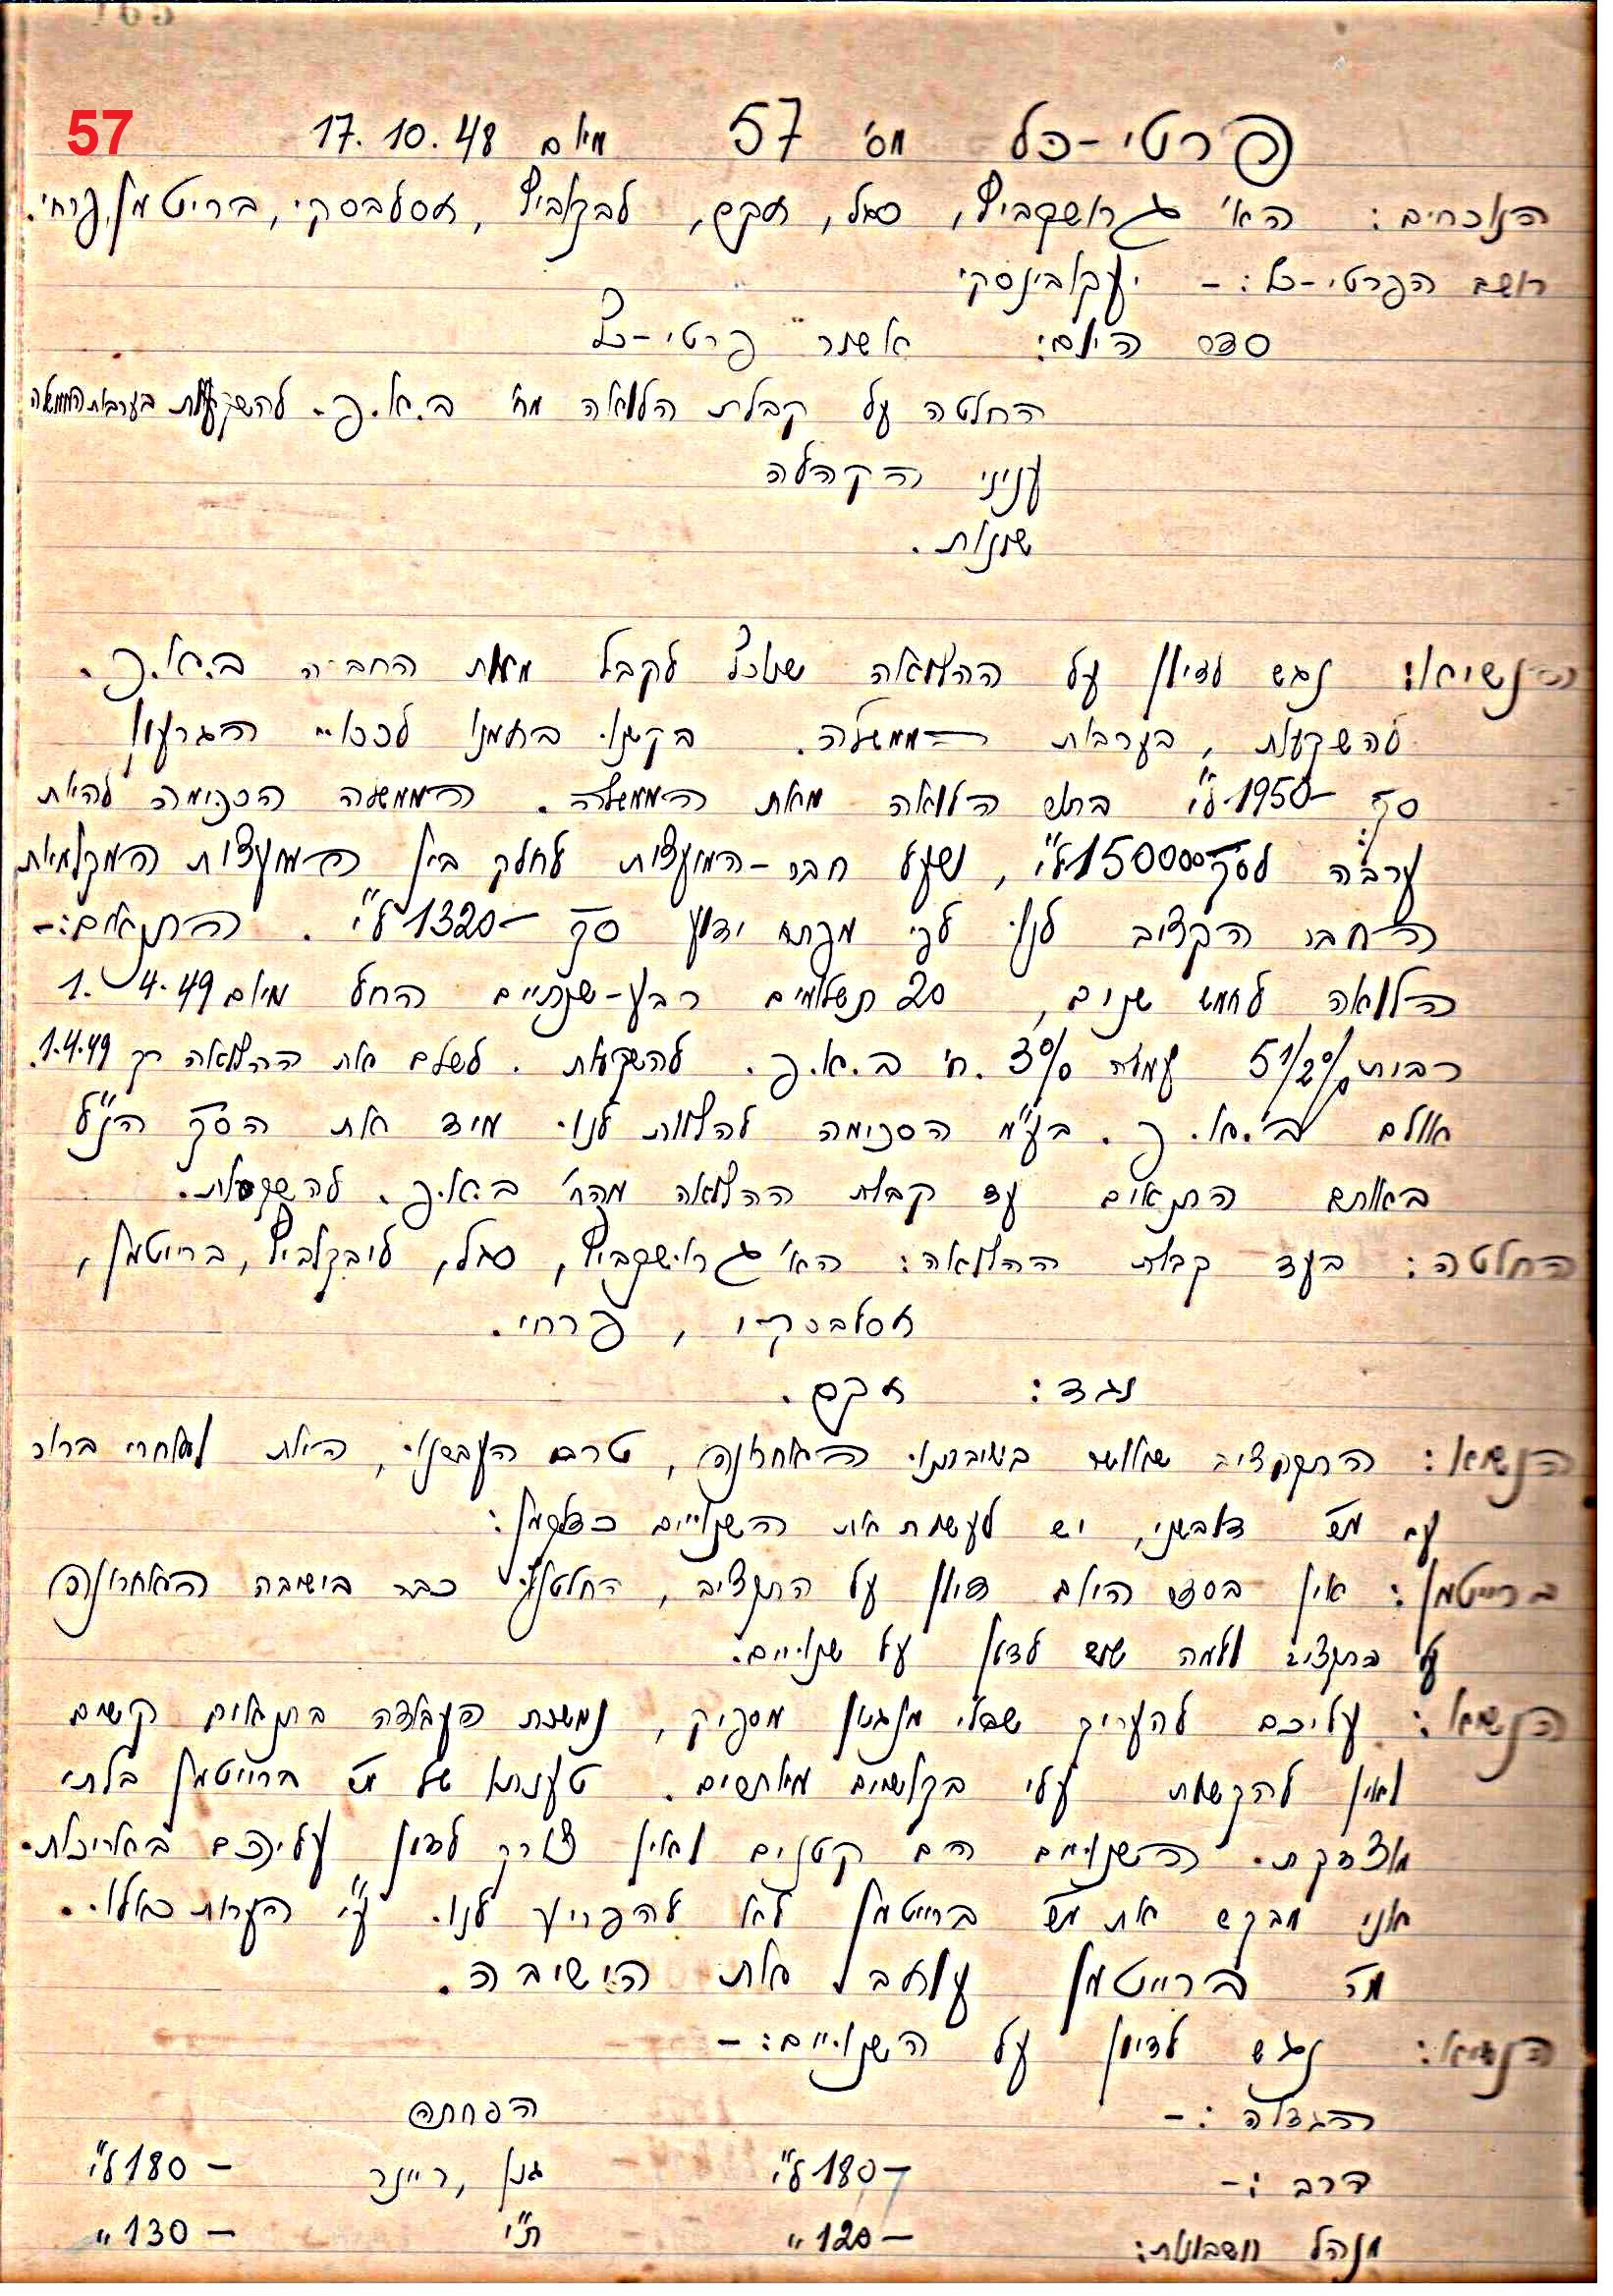 57
פרטי-כל מס' 57 מיום 17.10.48
הנוכחים: הא' גרושקביץ, סגל, זקם, לבקוביץ, זסלבסקי, ברייטמן, פרחי.
רושם הפרטי-כל: - יעקובינסקי
סדר היום: אשור פרטי-כל
החלטה על קבלת הלואה מח' ב.א.פ. להשקעות בערבות הממשלה
עניני הקהלה
שונות.
הנשיא: נגש לדיון על ההלואה שנוכל לקבל מאת החב'ה ב.א.פ.
להשקעות, בערבות הממשלה. בקשנו בזמנו לכסוי הגרעון
סך 1950- ל"י בתור הלואה מאת הממשלה. הממשלה הסכימה להיות
ערבה לסך 150000 ל"י, ושעל חבר-המועצות לחלק בין המועצות המקומיות
החבר הקציב לנו לפי מפתח ידוע סך 1320- ל"י. התנאים:-
הלואה לחמש שנים, 20 תשלומים רבע-שנתיים החל מיום 1.4.49
רבית 5 1/2% עמלה 3% .ח' ב.א.פ. להשקעות. לשלם את ההלואה רק 1.4.49.
אולם ב.א.פ. בע"מ הסכימה להלוות לנו מיד את הסך הנ"ל
באותם התנאים עד קבלת ההלואה מהח' ב.א.פ. להשקעות.
החלטה: בעד קבלת ההלואה: הא' גרושקביץ, סגל, ליבקוביץ, ברייטמן,
זסלבסקי, פרחי.
נגד: זקם.
הנשיא: התקציב שאושר בישיבתנו האחרונה, טרם העברנו, היות ולאחרי ברור
עם מר דובשני, יש לעשות את השנויים כדלקמן:
ברייטמן: אין בסדר היום דיון על התקציב, החלטנו כבר בישיבה האחרונה
על התקציב ולמה שוב לדון על שנויים.
הנשיא: עליכם להעריך שבלי מנגנון מספיק, נמשכת העבודה בתנאים קשים
ואין להקשות עלי בקשיים מיותרים. טענתו של מר ברייטמן בלתי
מוצדקת. השנויים הם קטנים ואין צורך לדון עליהם באריכות.
אני מבקש את מר ברייטמן לא להפריע לנו ע"י הערות כאלו.
מר ברייטמן עוזב את הישיבה.
הנשיא: נגש לדיון על השנויים: -
הגדלה: - הפחתה
דרב: - 180- ל"י גנן, ריינר 180- ל"י
מנהל חשבונות: 120- " ת"י 130- "